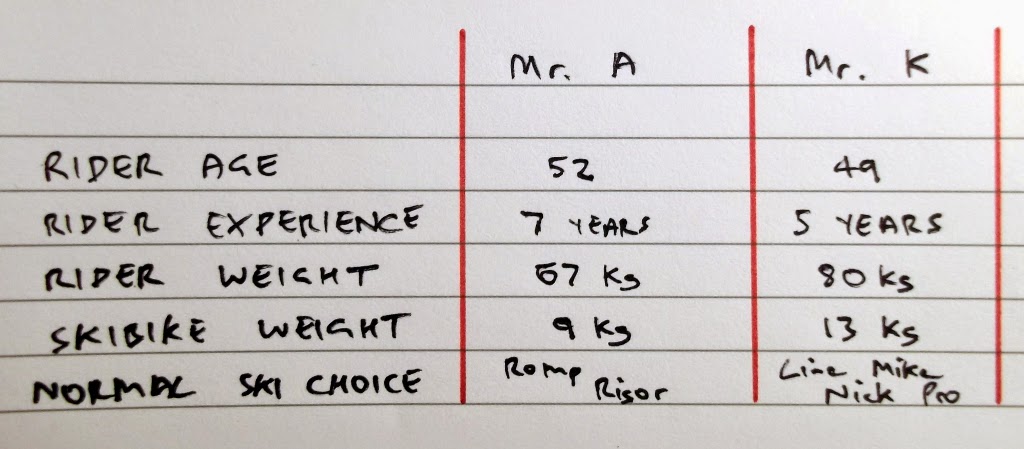 Mr. A Mr. K
RIDER AGE 52 49
RIDER EXPERIENCE 7 YEARS 5 YEARS
RIDER WEIGHT 67 Kg 80 Kg
SKIBIKE WEIGHT 9 Kg 13 Kg
NORMAL SKI CHOICE Romp Risor Line Mike Nick Pro